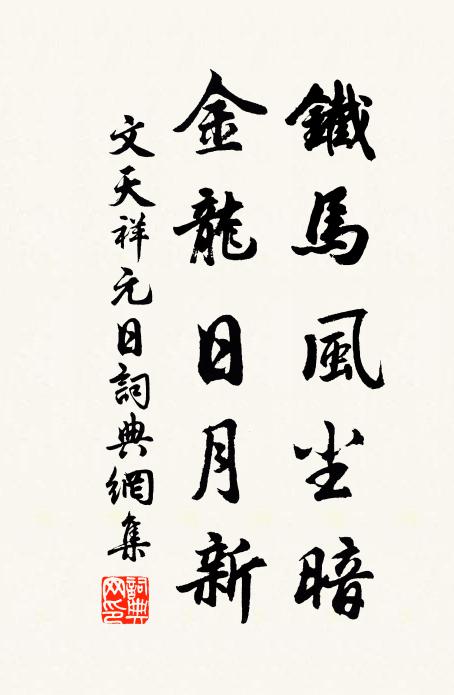 鐵馬風尘暗
金龍日月新
文天祥元日詞典網集
詞典网印